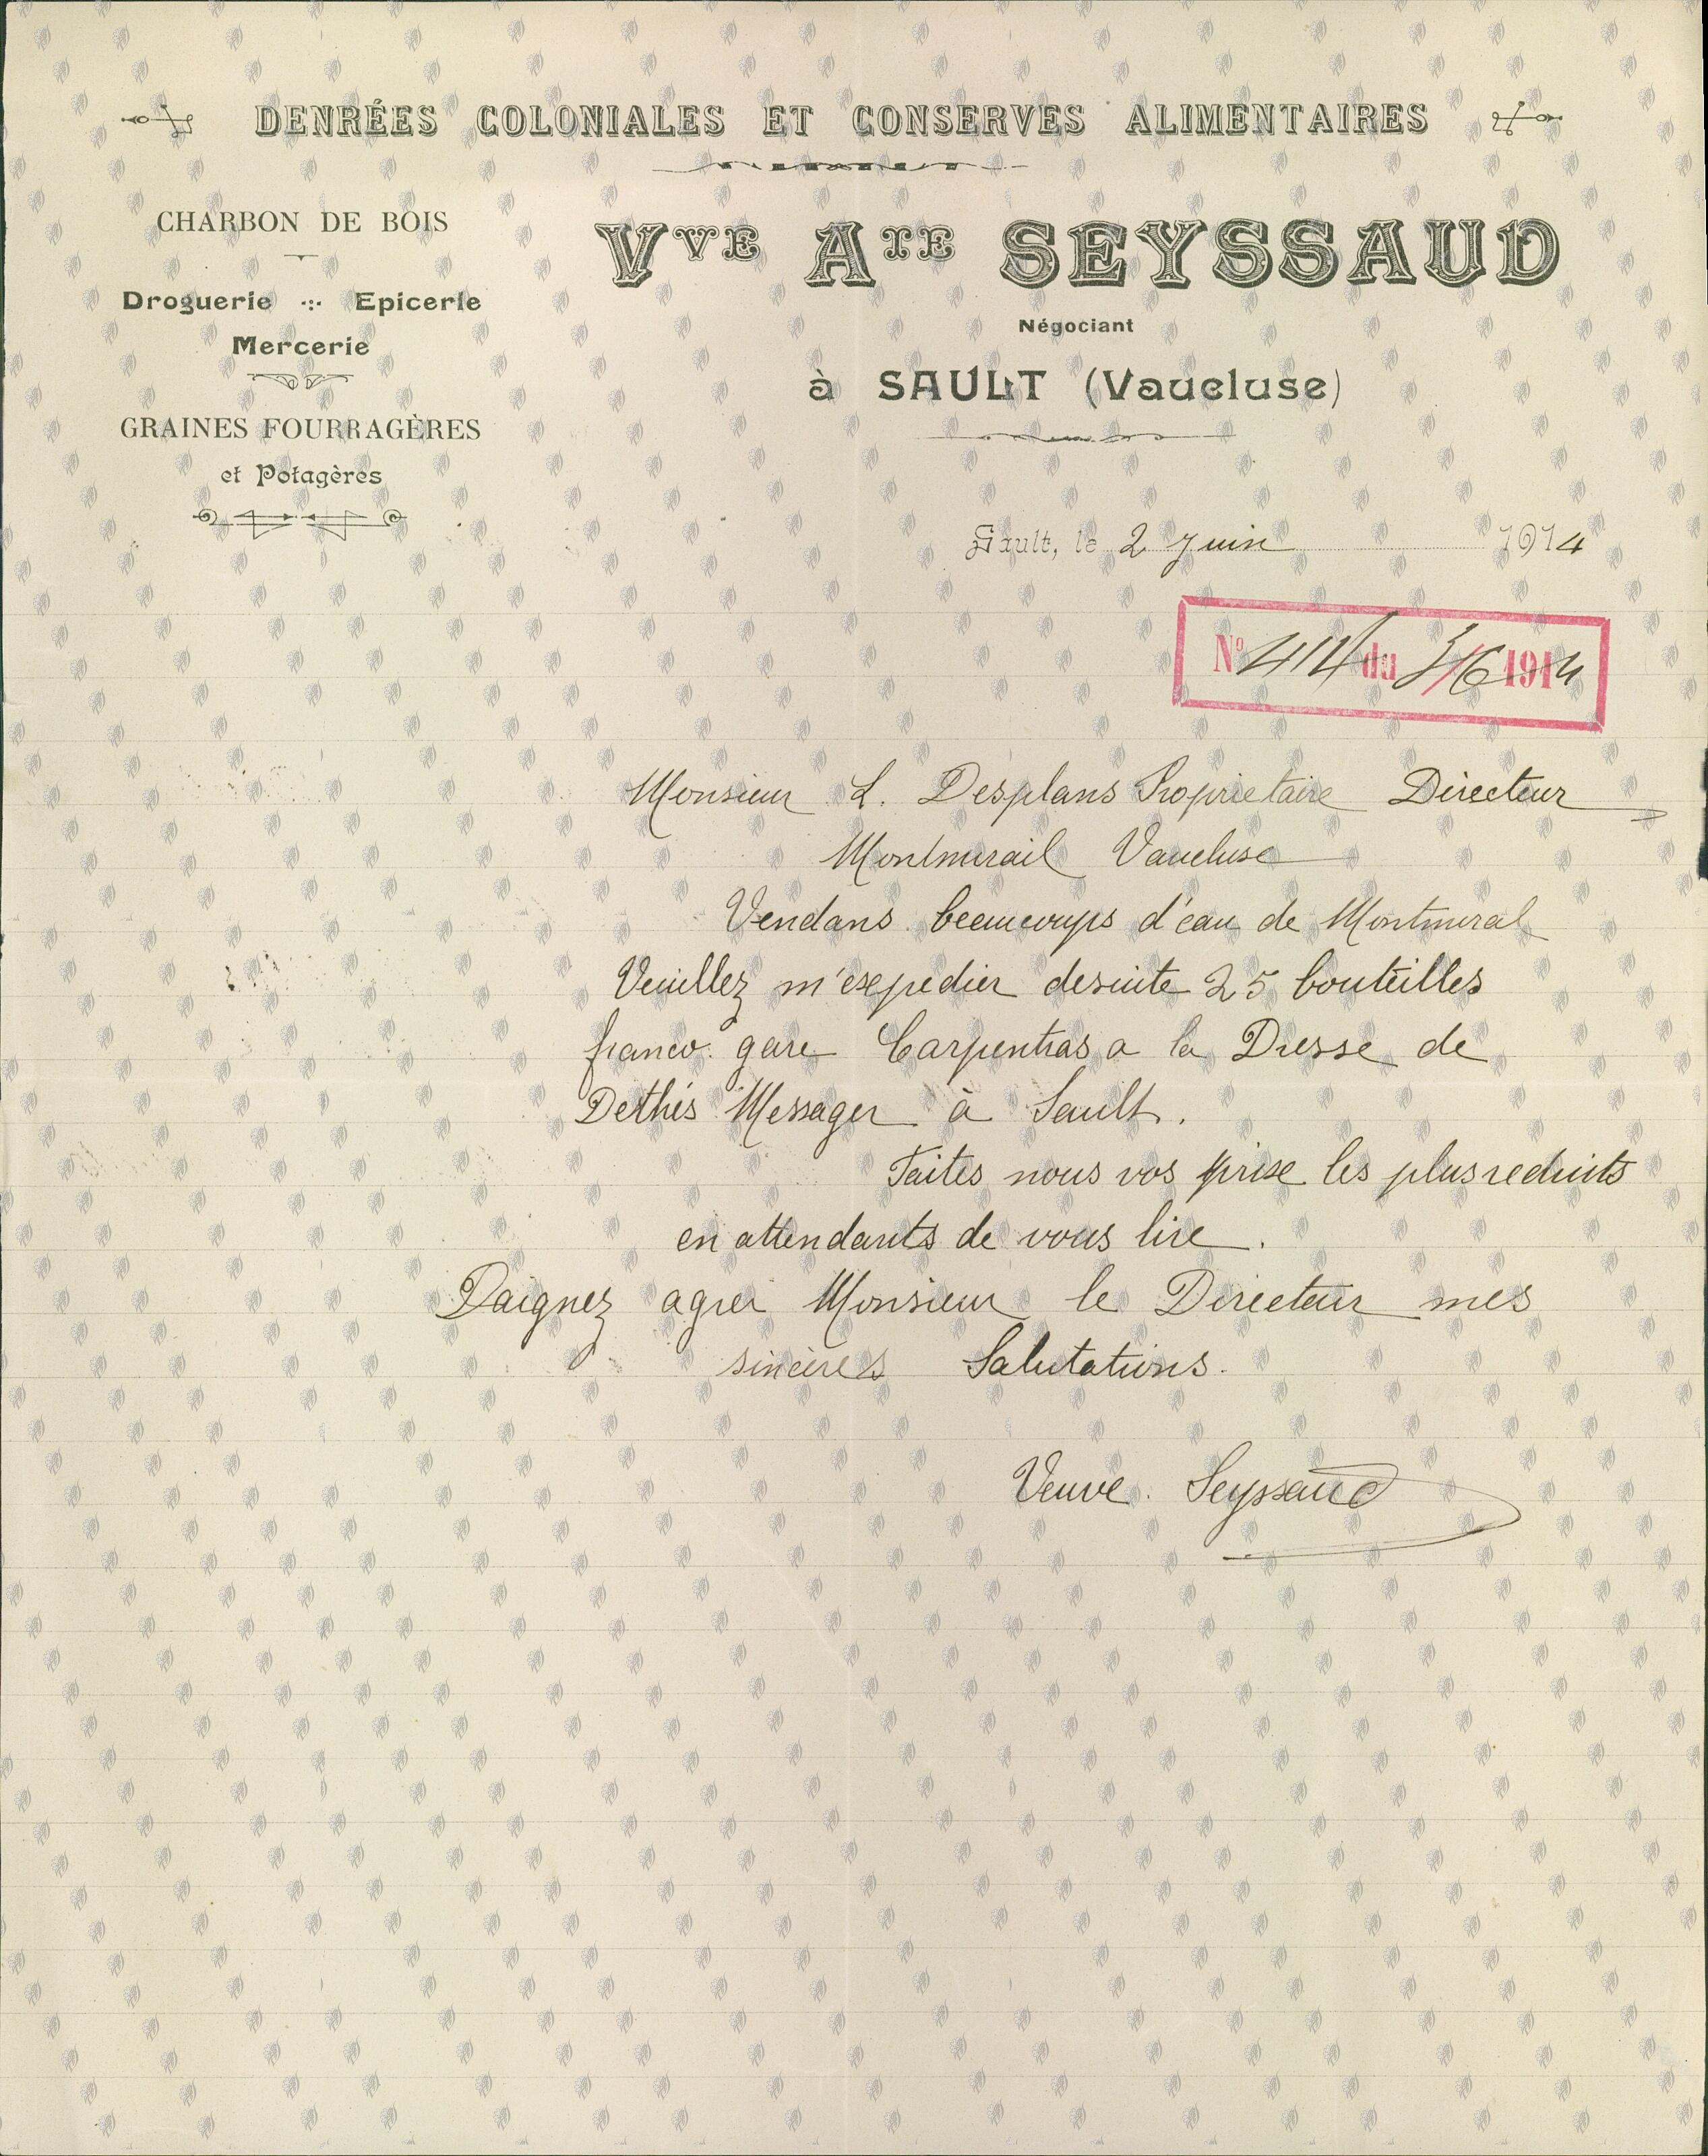 DENRÉES COLONIALES ET CONSERVES ALIMENTAIRES
CHARBON DE BOIS
Droguerie Epicerie
Mercerie
GRAINES FOURRAGÈRES
et Potagères
Vve Ate SEYSSAUD
Négociant
à SAULT (Vaucluse)
Sault, le 2 Juin 1914
No 414 du 3/6 1914
Monsieur L. Desplans Proprietaire Directeur
Montmirail Vaucluse
Vendans beaucoups d'eau de Montmiral
Veuillez m'exepedier desuite 25 bouteilles
franco gare Carpentras a la Dresse de
Dethés Messager à Sault.
Faites nous vos prixe les plus reduits
en attendants de vous lire.
Daignez agrer Monsieur le Directeur mes
sincères Salutations.
Veuve Seyssaud